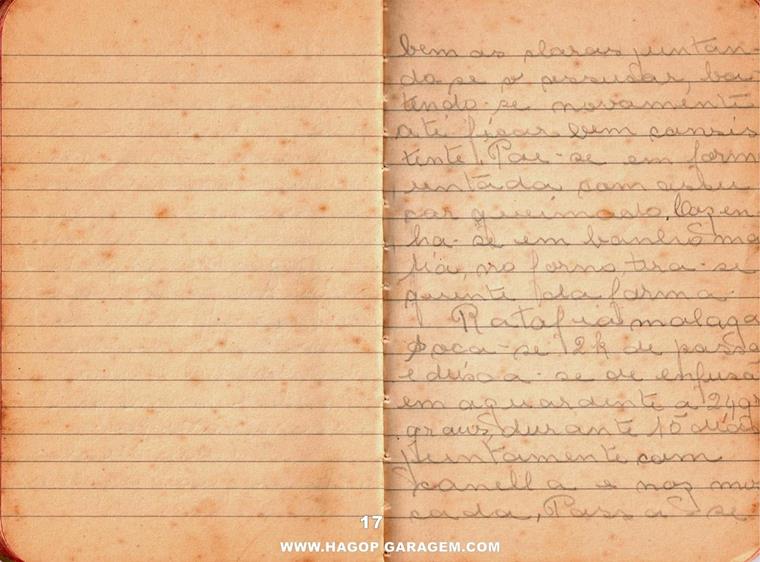 bem as claras juntan-
do-se o assucar, ba-
tendo-se novamente
até ficar bem consis
tente. Põe-se em form
untada com assu
car queimado. Cozen
ha-se em banho ma
ria, no forno, tira-se
quente da forma.
Ratafia malaga
Soca-se 2k de passa
e deixa-se de enfusã
em aguardente a 24gr
graus, durante 15 dias
juntamente com
canella e noz mos
cada, Passa-se
17
WWW.HAGOP GARAGEM.COM